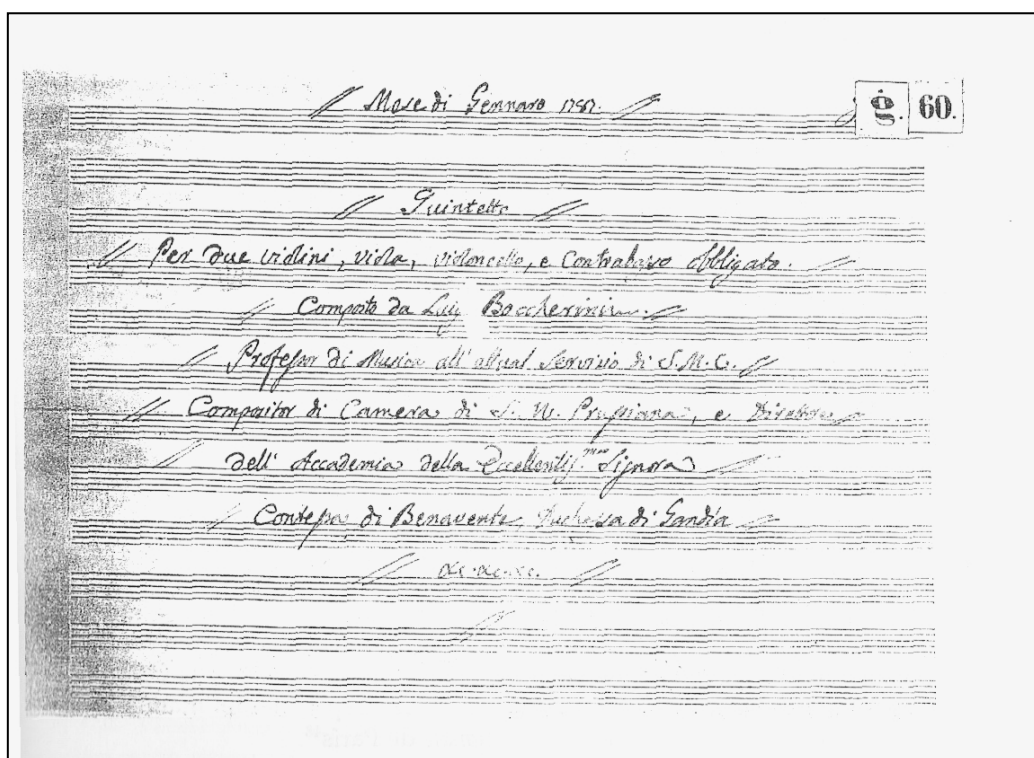 Mese di Gennaro 1787.
g. 60.
Quintetto
Per due violini, viola, violoncello, e Contrabasso obbligato.
Composto da Luigi Boccherini.
Professor di Musica all' attual Servizio di S.M.C.
Compositor di Camera di S. M. Prussiana, e Direttore
dell' Accademia della Eccellentiss.ma Signora
Contessa di Benavente, Duchessa di Gandía
&c. &c. &c.